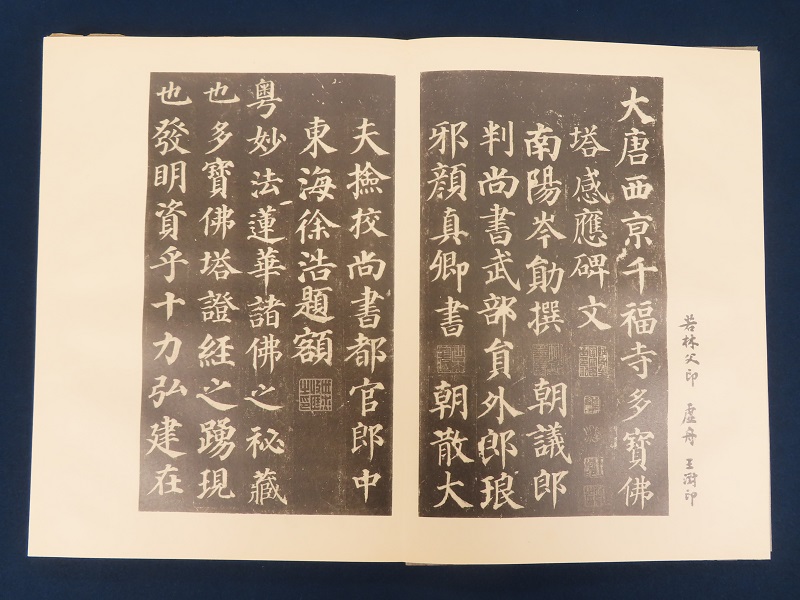 大唐西京千福寺多寶佛
塔感應碑文
南陽岑勛撰 朝議郎
判尚書武部貟外郎琅
邪顏真卿書 朝散大
夫撿挍尚書都官郎中
東海徐浩題額
粵妙法蓮華諸佛之祕藏
也多寶佛塔證経之踴現
也發明資乎十力弘建在
若林父印 虛舟 王澍印